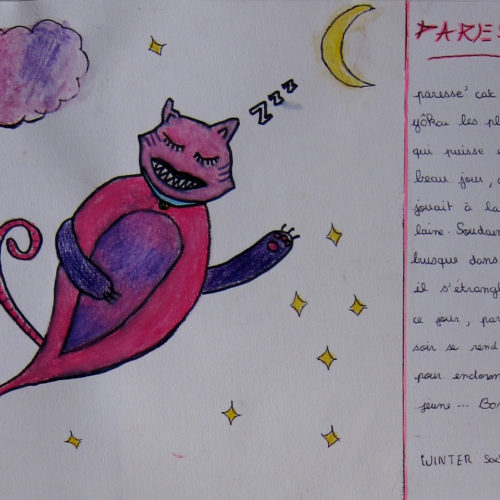 zzz
PARES
paresse' cak
yôkai les pl
qui puisse e
beau jour,
jouait à la
laine. Soudain
brusque dans
il s'étrangl
ce jour, par
soir se rend
pour endorm
jeune... Bon
WINTER Sac